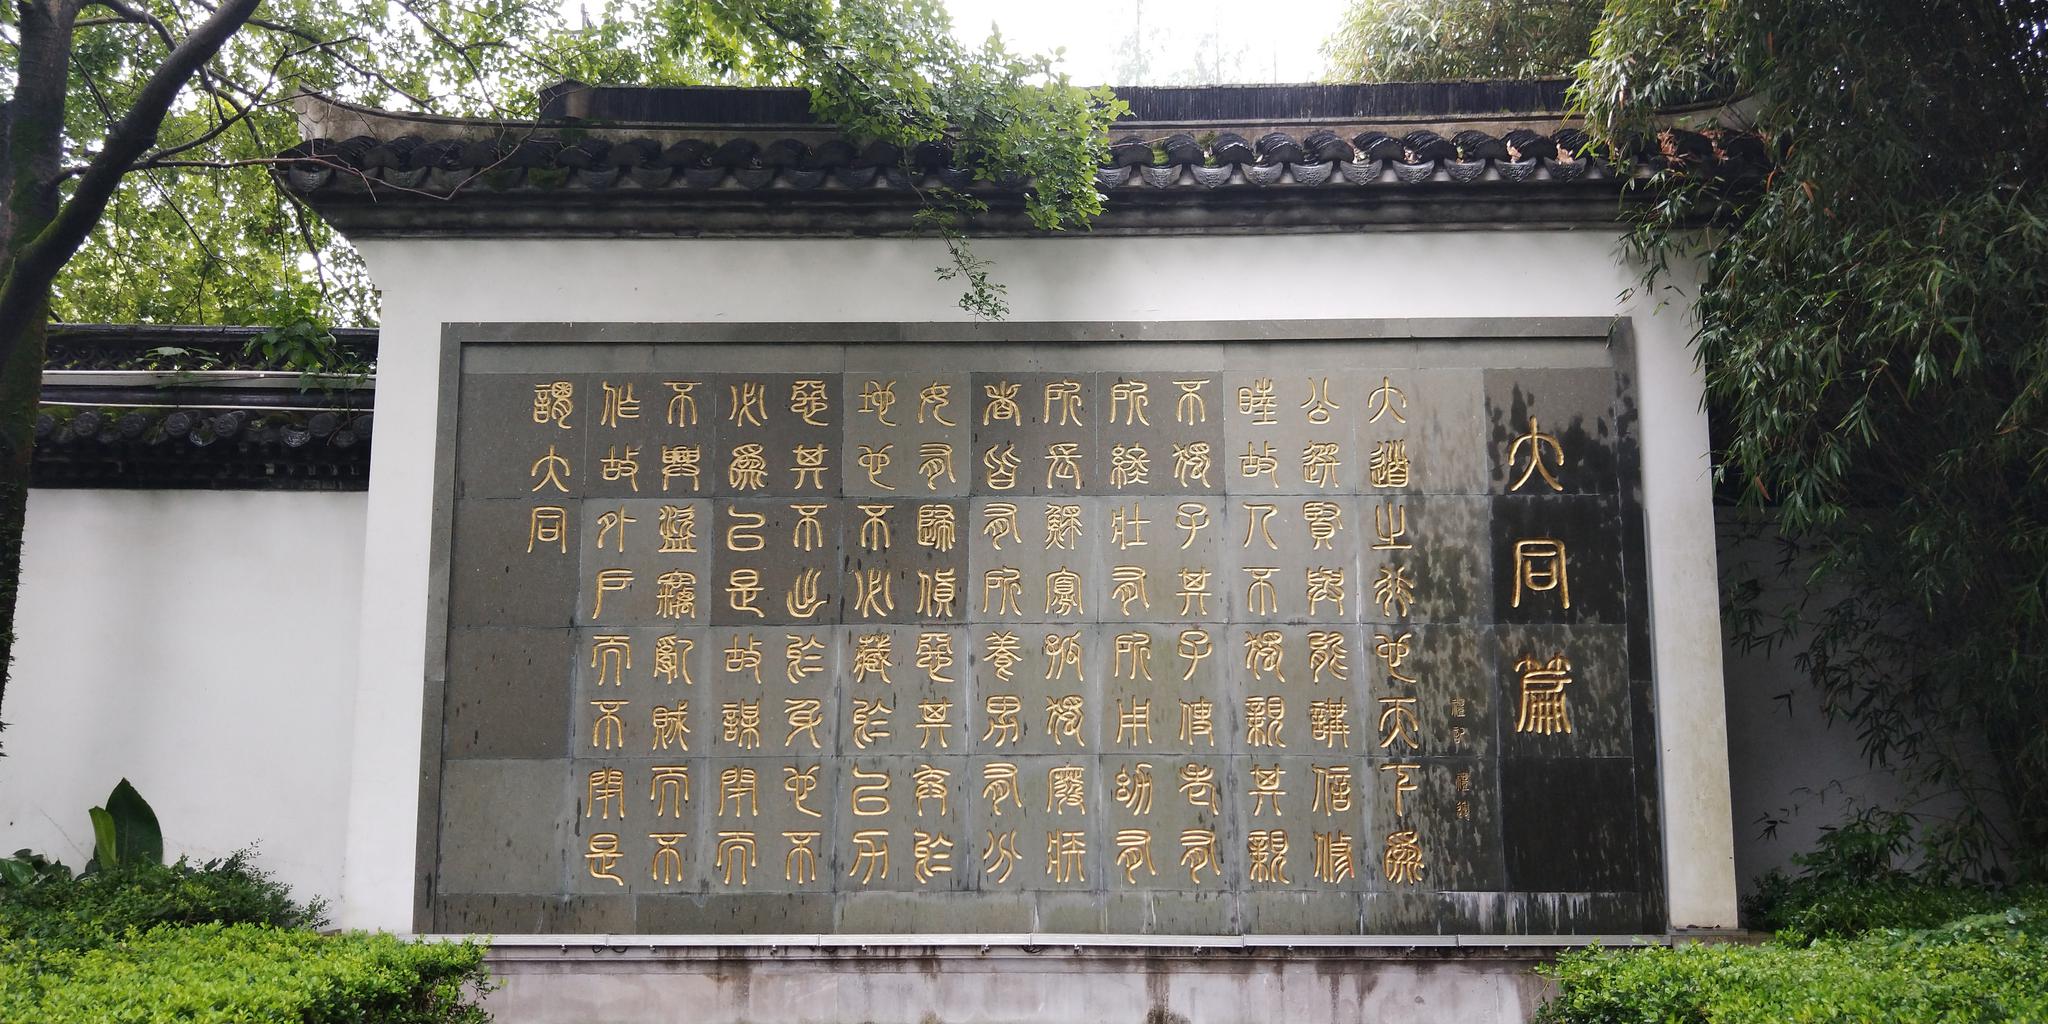 大同篇
禮記 禮運
大道之行也天下爲
公選賢與能講信修
睦故人不獨親其親
不獨子其子使老有
所終壯有所用幼有
所長鰥寡孤獨廢疾
者皆有所養男有分
女有歸貨惡其棄於
地也不必藏於己力
惡其不出於身也不
必爲己是故謀閉而
不興盜竊亂賊而不
作故外戶而不閉是
謂大同